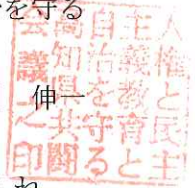 を守る
伸一
人権と民主
主義教育と
自治を守る
高知県共闘
会議之印